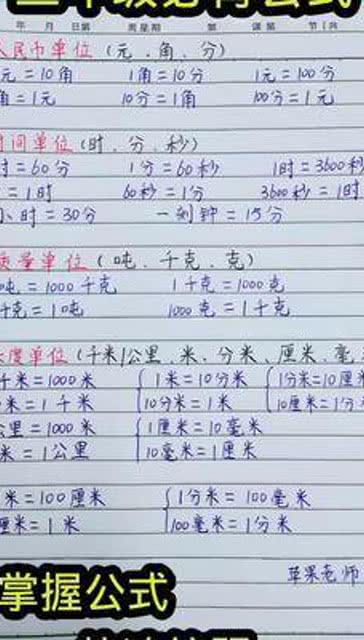 年 月 日第 周星期 第 课 第 节 1共
人民币单位(元、角、分)
元=10角 1角=10分 1元=100分
角=1元 10分=1角 100分=1元
时间单位(时、分、秒)
时=60分 1分=60秒 1时=3600秒
=1时 60秒=1分 3600秒=1时
小时=30分 一刻钟=15分
质量单位(吨、千克、克)
吨=1000千克 1千克=1000克
千克=1吨 1000克=1千克
长度单位(千米|公里、米、分米、厘米、毫
千米=1000米 1米=10分米 1分米=10厘米
米=1千米 10分米=1米 10厘米=1分
公里=1000米 1厘米=10毫米
米=1公里 10毫米=1厘米
米=100厘米 1分米=100毫米
厘米=1米 100毫米=1分米
苹果老师
掌握公式